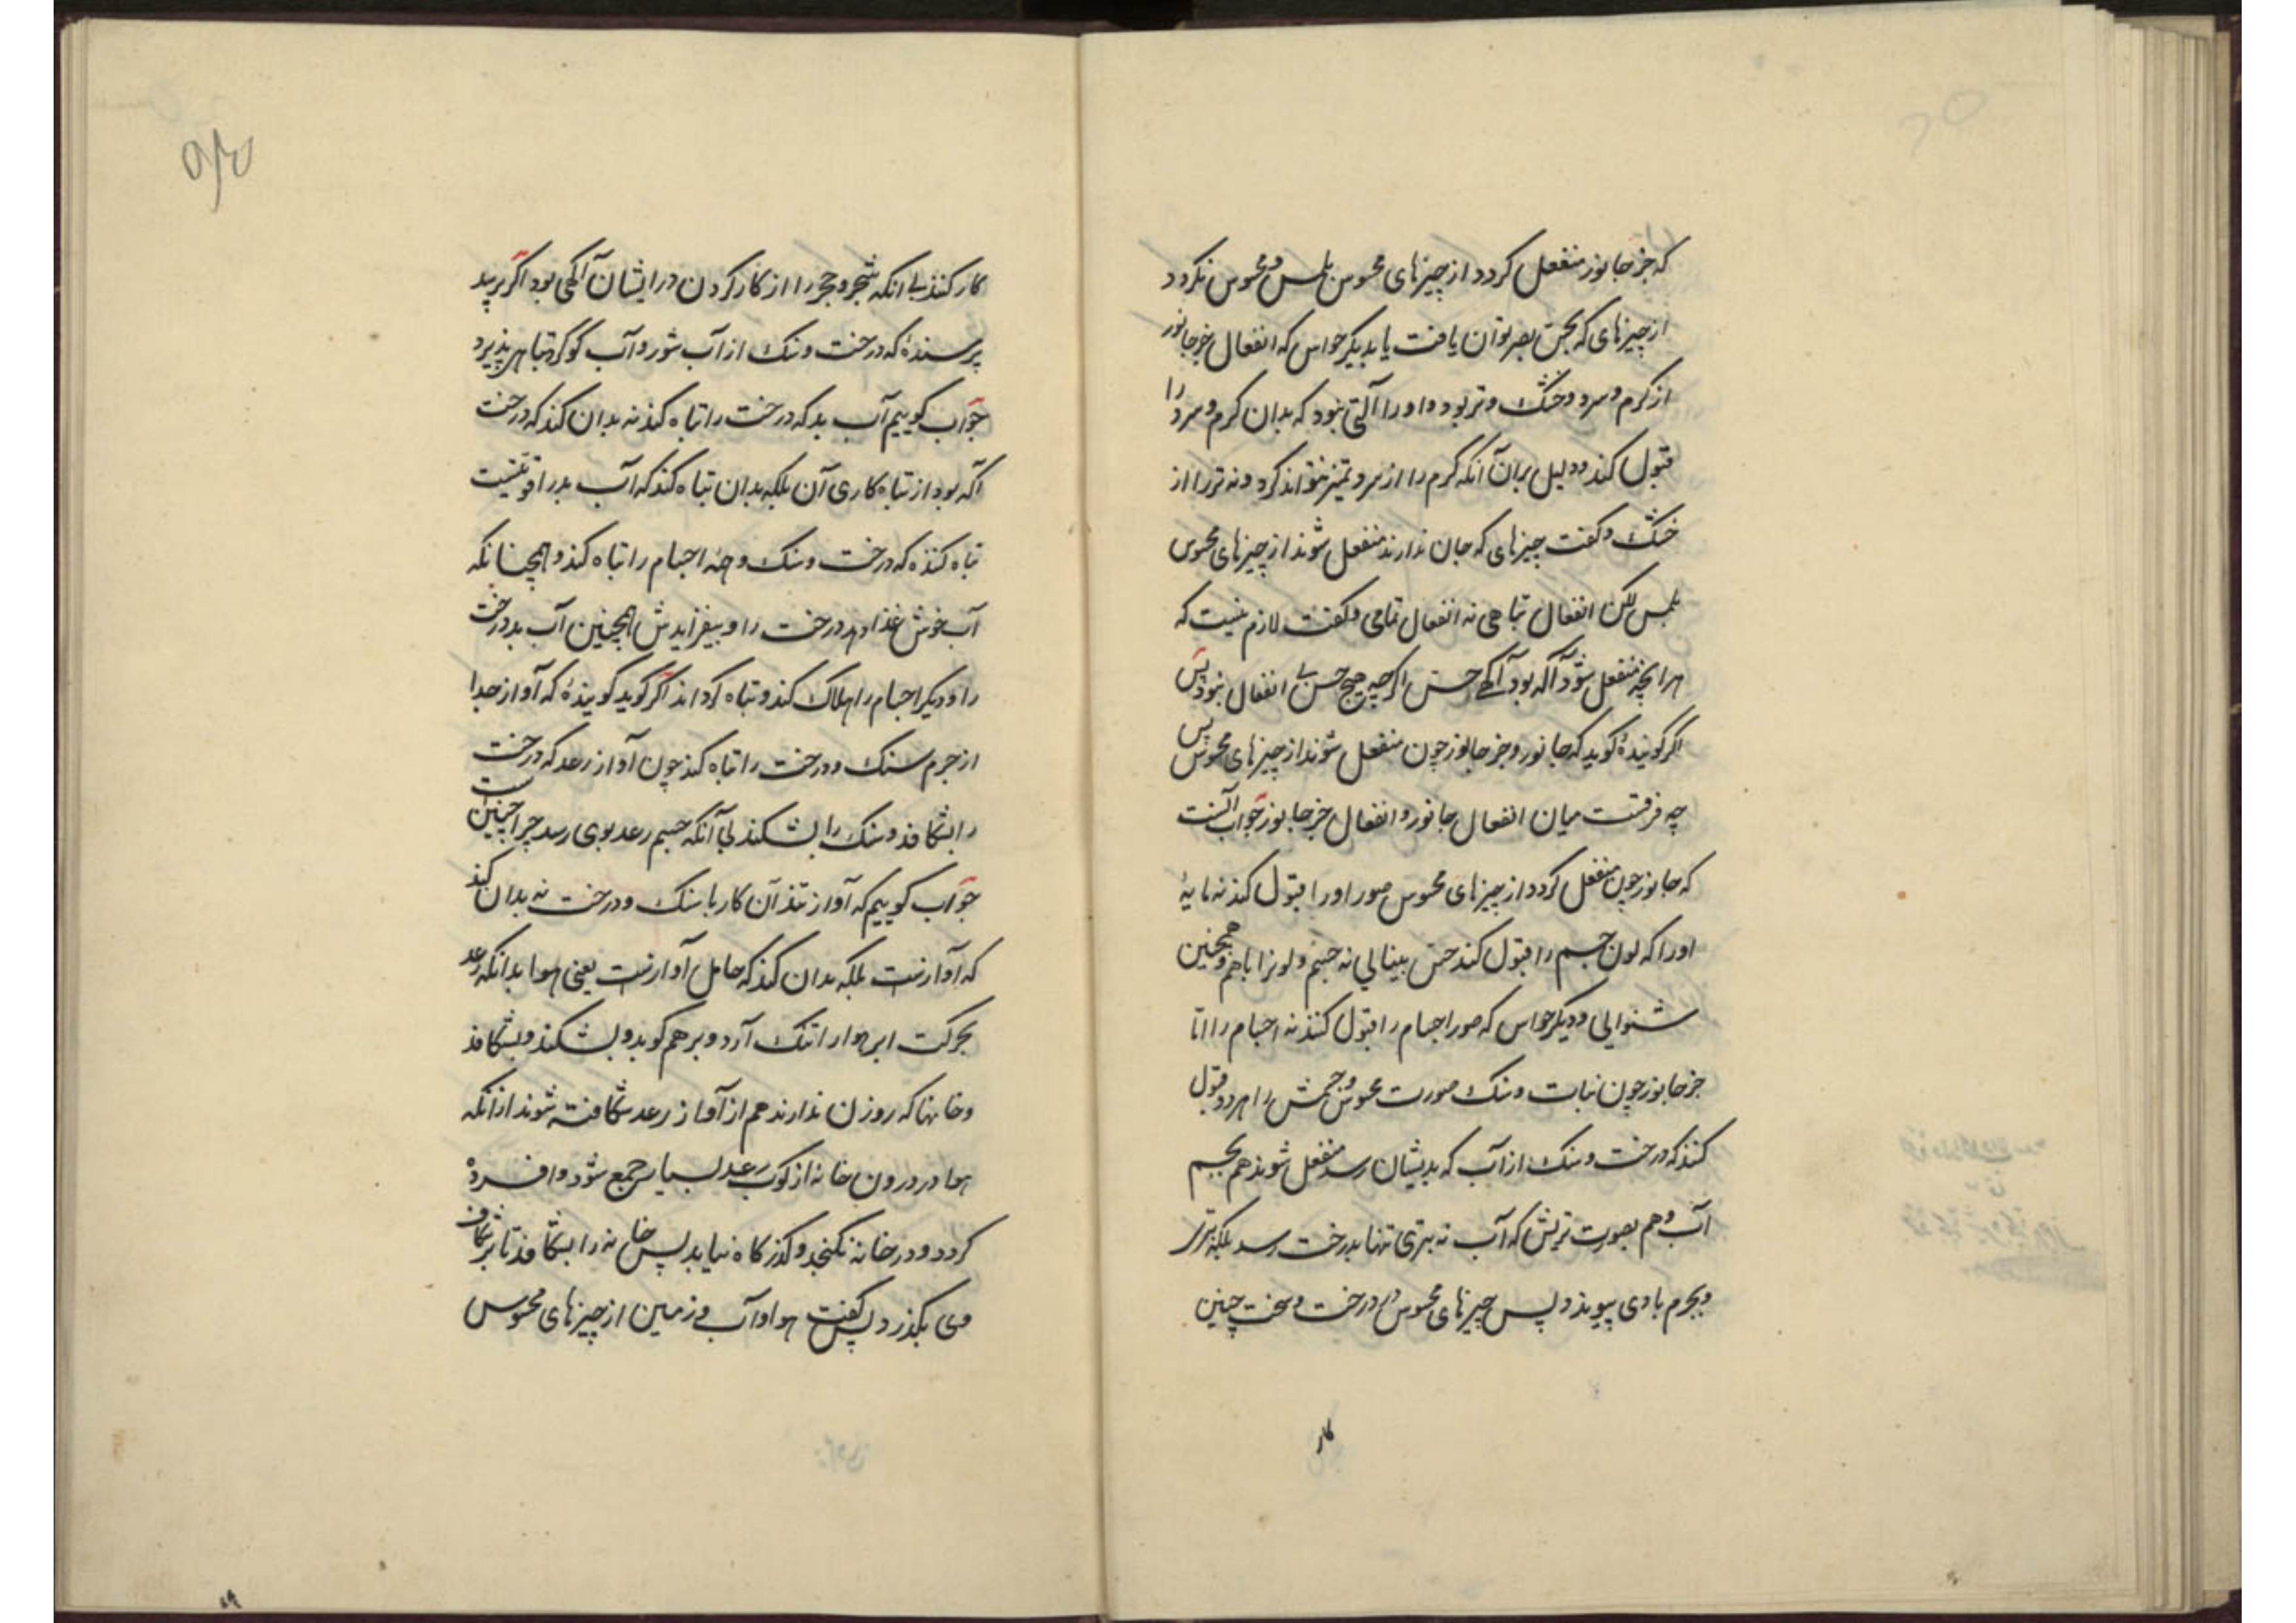 که جز جانور منفعل کردد از چیزهای محسوس بلمس و محسوس نکردد
از چیزهای که بحس بصر توان یافت یا بدیکر حواس که انفعال جز جانور
از کرم و سرد و خشک و تر بود و او را آلتی نبود که بدان کرم و سرد را
قبول کند و دلیل بر آن آنکه کرم را از سرد تمیز نتواند کرد و نه تر را از
خشک و کفت چیزهای که جان ندارند منفعل شوند از چیزهای محسوس
بلمس لکن انفعال تباهی نه انفعال تمامی و کفت لازم نیست که
هر آنچه منفعل شود آکه بود آکهی حس اکرچه هیچ حس بی انفعال نبود پس
اکر کوینده کوید که جانور و جز جانور چون منفعل شوند از چیزهای محسوس پس
چه فرقست میان انفعال جانور و انفعال جز جانور جواب آنست
که جانور چون منفعل کردد از چیزهای محسوس صور او را قبول کند نه مایهٔ
او را که لون جسم را قبول کند حس بینایی نه جسم و لونرا باهم و همچنین
شنوایی و دیکر حواس که صور اجسام را قبول کنند نه اجسام را اما
جز جانور چون نبات و سنک صورت محسوس و جسمش را هر دو قبول
کنند که درخت و سنک از آب که بدیشان رسد منفعل شوند هم بجسم
آب و هم بصورت تریش که آب نه بتری تنها بدرخت رسد بلکه بتری
و بجرم با وی پیوندد پس چیزهای محسوس در درخت و سخت چنین
کار
کار کنند بی آنکه شجر و حجر را از کار کردن در ایشان آکهی بود اکر پرسد
پرسندهٔ که درخت و سنک از آب شور و آب کوکرد تباهی پذیرد
جواب کوییم آب بد که درخت را تباه کند نه بدان کند که درخت
آکه بود از تباه کاری آن بلکه بدان تباه کند که آب بد را قوتیست
تباه کننده که درخت و سنک و همه اجسام را تباه کند و همچنانکه
آب خوش غذا دهد درخت را و بیفزایدش همچنین آب بد درخت
را و دیکر اجسام را هلاک کند و تباه کرداند اکر کوید کویندهٔ که آواز جدا
از جرم سنک و درخت را تباه کند چون آواز رعد که درخت
را بشکافد و سنک را بشکند بی آنکه جسم رعد بوی رسد چرا چنین است
جواب کوییم که آواز تند آن کار با سنک و درخت نه بدان کند
که آوازست بلکه بدان کند که حامل آوازست یعنی هوا بدانکه رعد
بحرکت ابر هوا را تنک آرد و برهم کوبد و بشکند و بشکافد
و خانها که روزن ندارند هم از آواز رعد شکافته شوند از آنکه
هوا در درون خانه از کوب رعد بسیار جمع شود و افسرده
کردد و در خانه نکنجد و کذرکاه نیابد پس خانه را بشکافد تا بر شکاف
وی بکذرد پس کفت هوا و آب و زمین از چیزهای محسوس